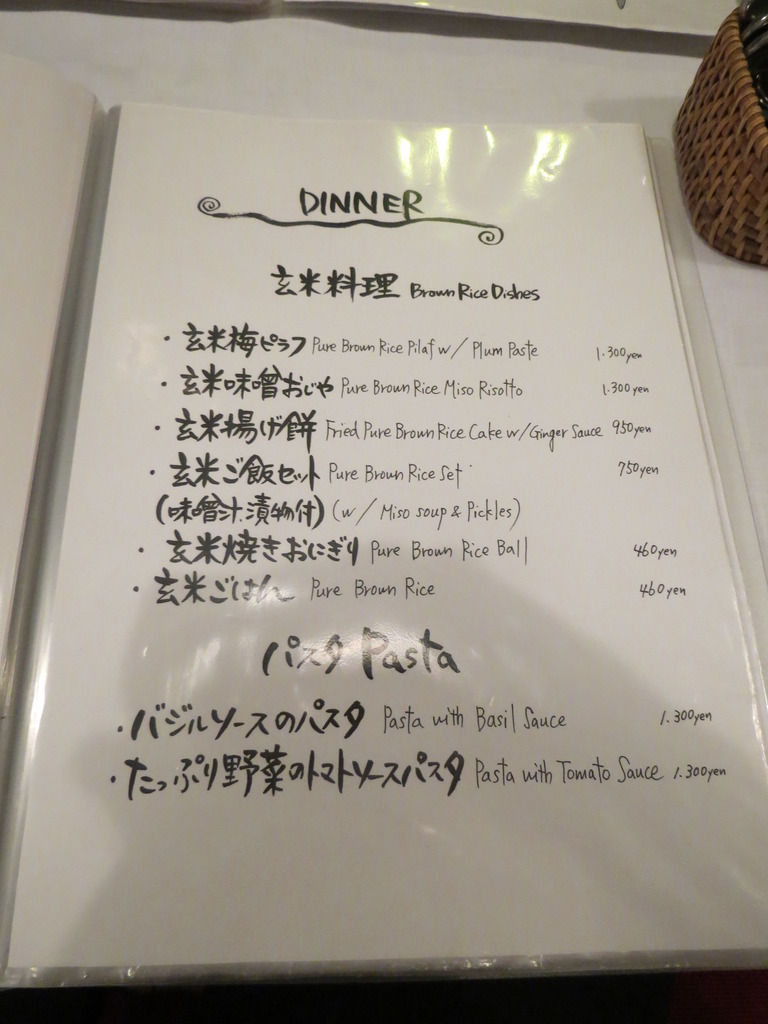 DINNER
玄米料理 Brown Rice Dishes
・玄米梅ピラフ Pure Brown Rice Pilaf w/ Plum Paste 1.300yen
・玄米味噌おじや Pure Brown Rice Miso Risotto 1.300yen
・玄米揚げ餅 Fried Pure Brown Rice Cake w/Ginger Sauce 950yen
・玄米ご飯セット Pure Brown Rice Set 750yen
(味噌汁.漬物付) (w/ Miso soup & Pickles)
・玄米焼きおにぎり Pure Brown Rice Ball 460yen
・玄米ごはん Pure Brown Rice 460yen
パスタ Pasta
・バジルソースのパスタ Pasta with Basil Sauce 1.300yen
・たっぷり野菜のトマトソースパスタ Pasta with Tomato Sauce 1.300yen